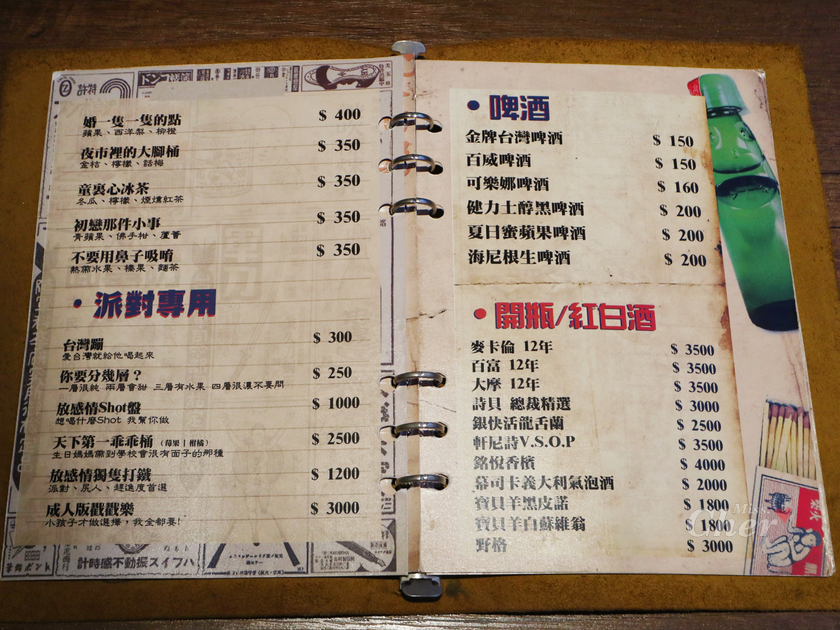 婚一隻一隻的點 $ 400
蘋果、西洋梨、柳橙
夜市裡的大腳桶 $ 350
金桔、檸檬、話梅
童裏心冰茶 $ 350
冬瓜、檸檬、煙燻紅茶
初戀那件小事 $ 350
青蘋果、佛手柑、蘆薈
不要用鼻子吸唷 $ 350
熱帶水果、榛果、麵茶
• 派對專用
台灣蹦 $ 300
愛台灣就給他喝起來
你要分幾層？ $ 250
一層很純 兩層會甜 三層有水果 四層很濃不要問
放感情Shot盤 $ 1000
想喝什麼Shot 我幫你做
天下第一乖乖桶 (莓果 | 柑橘) $ 2500
生日媽媽帶到學校會很有面子的那種
放感情獨隻打鐵 $ 1200
派對、尻人、趕進度首選
成人版戳戳樂 $ 3000
小孩子才做選擇，我全都要!
計時感不動振スイフハ
• 啤酒
金牌台灣啤酒 $ 150
百威啤酒 $ 150
可樂娜啤酒 $ 160
健力士醇黑啤酒 $ 200
夏日蜜蘋果啤酒 $ 200
海尼根生啤酒 $ 200
• 開瓶/紅白酒
麥卡倫 12年 $ 3500
百富 12年 $ 3500
大摩 12年 $ 3500
詩貝 總裁精選 $ 3000
銀快活龍舌蘭 $ 2500
軒尼詩V.S.O.P $ 3500
銘悅香檳 $ 4000
幕司卡義大利氣泡酒 $ 2000
寶貝羊黑皮諾 $ 1800
寶貝羊白蘇維翁 $ 1800
野格 $ 3000